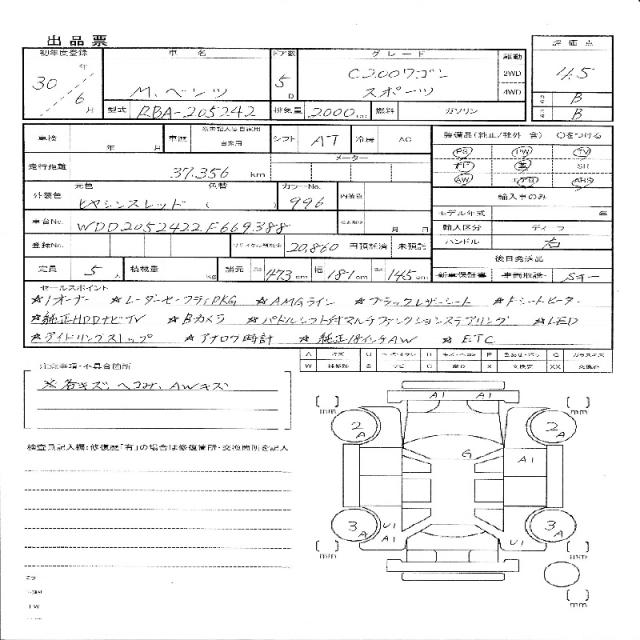 出品票
初年度登録 車名 ドア数 グレード 駆動 評価点
30年 6月 M.ベンツ 5D C200ワゴン スポーツ 2WD 4WD 4.5
B
B
型式 RBA-205242 排気量 2000cc 燃料 ガソリン
車検 年 月 車歴 自家用 シフト AT 冷房 AC 装備品(純正/社外 含) ○をつける
走行距離 37,356 km メーター
PS PW TV
SR
AW ABS
元色 色替 カラーNo. 輸入車のみ
外装色 ヒヤシンスレッド ( ) 996 内装色 モデル年式 年
車台No. WDD2052422F669388 月 日 輸入区分 ディーラ
登録No. リサイクル預託金 20,860 円預託済 未預託 ハンドル 右
定員 5人 積載量 kg 諸元 473cm 幅 181cm 145cm
後日発送品
新車保証書 車両取説 Sキー
セールスポイント
★1オーナー ★レーダーセーフティPKG ★AMGライン ★ブラックレザーシート ★Fシートヒーター
★純正HDDナビTV ★Bカメラ ★パドルシフト付マルチファンクションステアリング ★LED
★アイドリングストップ ★アナログ時計 ★純正18インチAW ★ETC
A キズ U P C
W S X 交換要 XX
注意事項・不具合箇所
※各キズ、ヘコみ、AWキズ
検査員記入欄:修復歴「有」の場合は修復箇所・交換箇所を記入
mm A1 A1 mm
2 A 2 A
G A1
3 A U1 A1 3 A
U1
mm A1 mm
mm